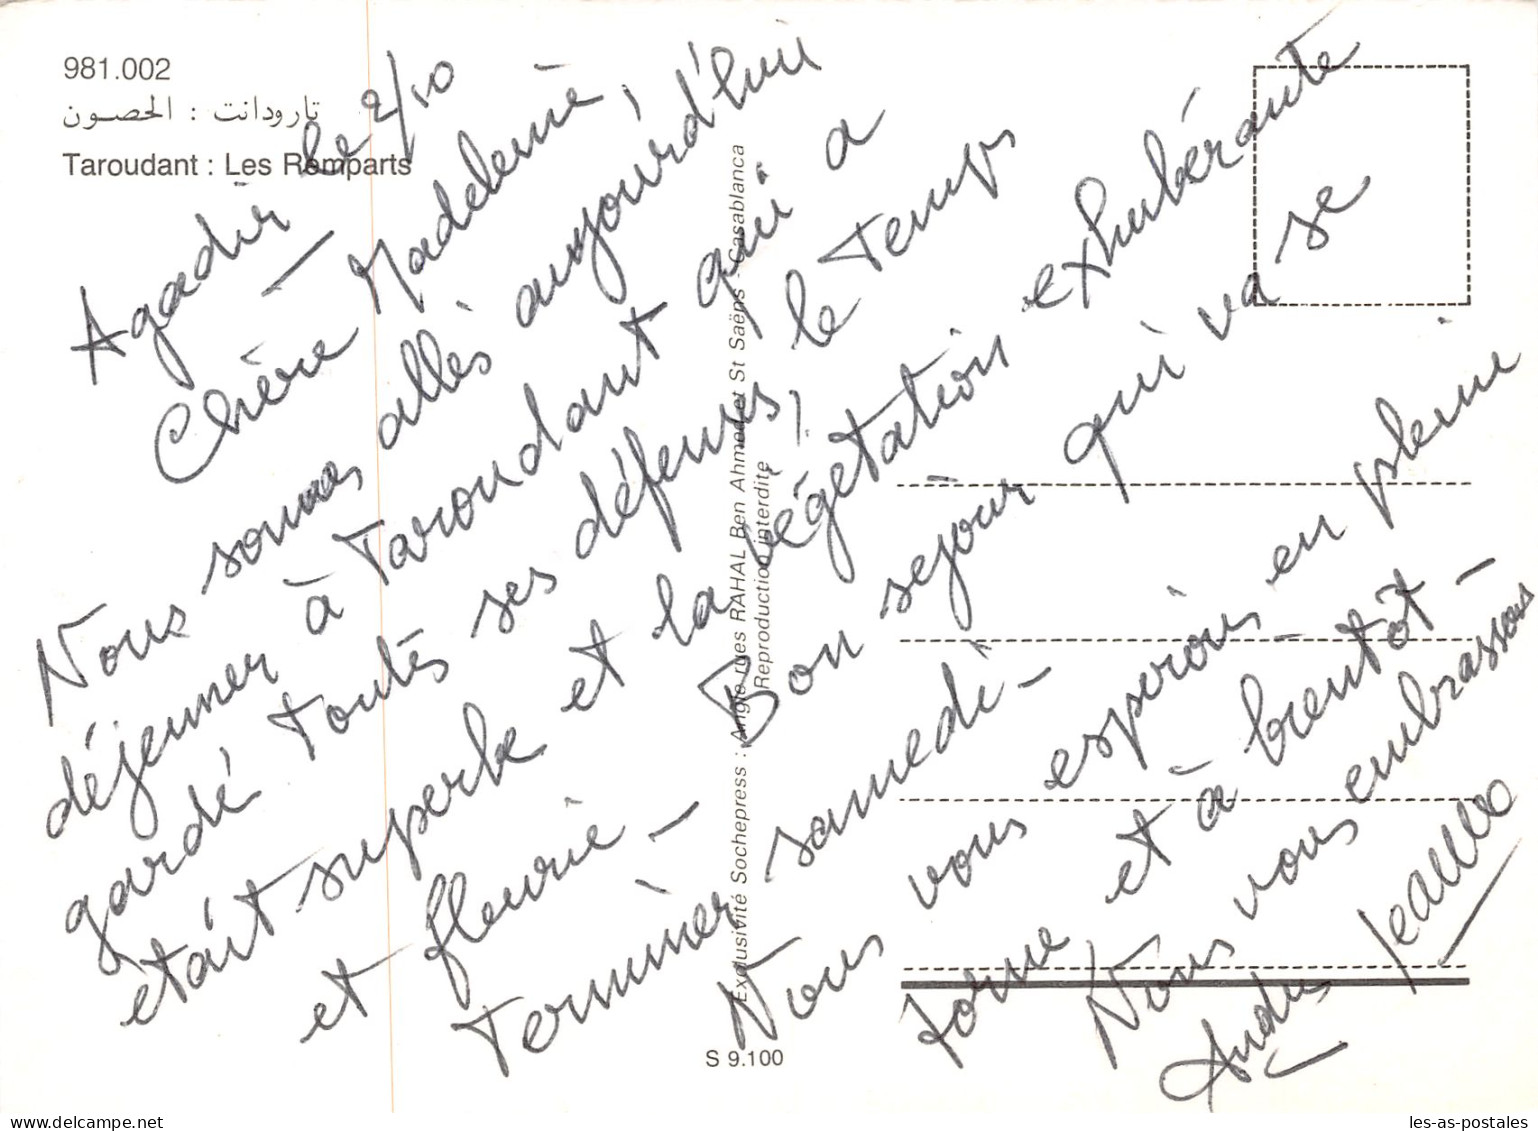 981.002
تارودانت : الحصون
Taroudant : Les Remparts
Agadir le 2/10
Chère Madeleine,
Nous sommes allés aujourd'hui
déjeuner à Taroudant qui a
gardé toutes ses défenses, le temps
était superbe et la végétation exhubérante
et fleurie – Bon sejour qui va se
Terminer samedi –
Nous vous esperons en pleine
forme et à bientôt –
Nous vous embrassons
Andrée Jeanne
Exclusivité Sochepress : Angle rues RAHAL Ben Ahmed et St Saëns - Casablanca
Reproduction interdite
S 9.100
delcampe.net
les-as-postales